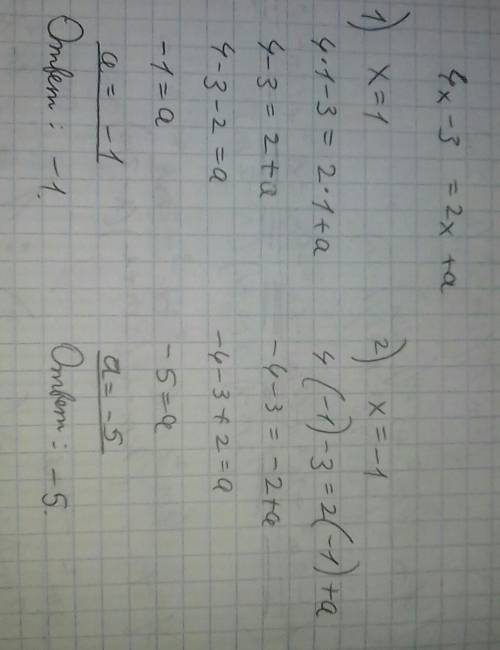 4x - 3 = 2x + a
1) x = 1
4·1 - 3 = 2·1 + a
4 - 3 = 2 + a
4 - 3 - 2 = a
-1 = a
a = -1
Ответ: -1.
2) x = -1
4(-1) - 3 = 2(-1) + a
-4 - 3 = -2 + a
-4 - 3 + 2 = a
-5 = a
a = -5
Ответ: -5.